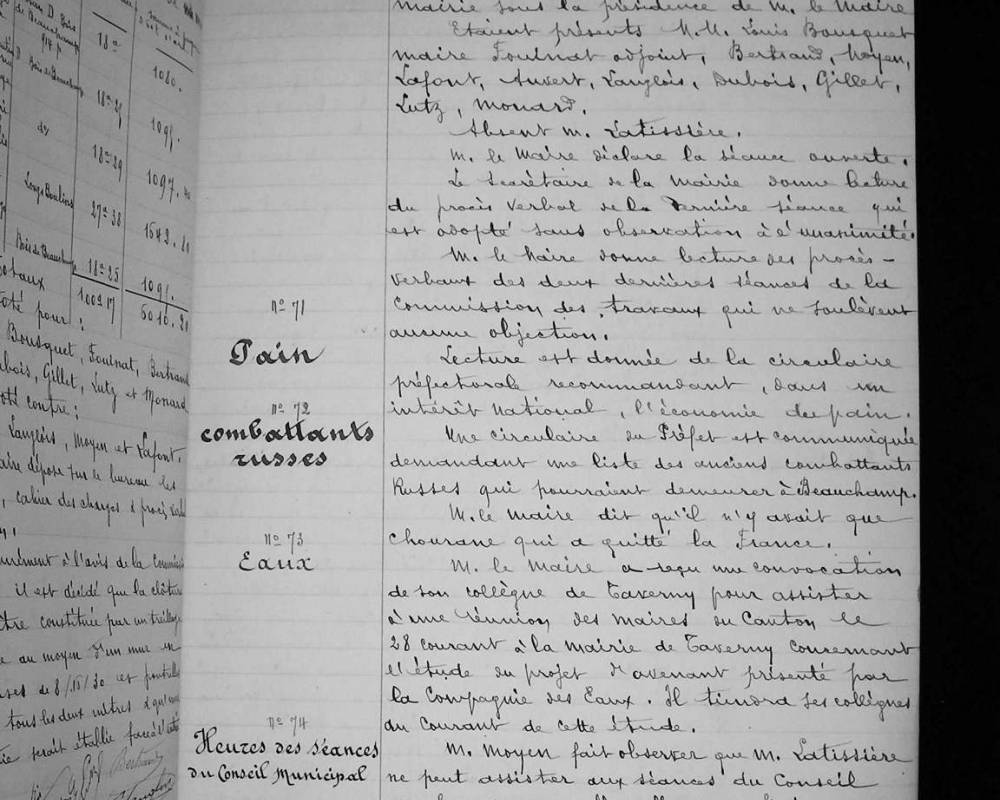 Bois
de Beauchamp
18 m
1080.
Bois de Beauchamp
18 m 25
1095.
do
18 m 29
1097.
Longs Boulins
27 m 38
1642.80
Bois de Beauchamp
18 m 25
1095.
Totaux
100 m 17
6010.20
pour :
Bousquet, Foulnat, Bertrand
Dubois, Gillet, Lutz et Monard
contre :
Langlois, Moyen et Lafont.
dépose sur le bureau les
, cahier des charges & procès verbal
à l'avis de la Commission
il est décidé que la clôture
constituée par un treillage
au moyen d'un mur en
de 8/15/30 et
tous les deux mètres
serait établie
mairie sous la présidence de M. le Maire
Etaient présents M.M. Louis Bousquet
maire Foulnat adjoint, Bertrand, Moyen,
Lafont, Auvert, Langlois, Dubois, Gillet,
Lutz, Monard.
Absent M. Latissière.
M. le Maire déclare la séance ouverte.
Le Secrétaire de la Mairie donne lecture
du procès verbal de la dernière séance qui
est adopté sans observation à l'unanimité.
M. le Maire donne lecture des procès-
verbaux des deux dernières séances de la
Commission des travaux qui ne soulèvent
aucune objection.
No 71
Pain
Lecture est donnée de la circulaire
préfectorale recommandant, dans un
intérêt National, l'économie du pain.
No 72
combattants
russes
Une circulaire du Préfet est communiquée
demandant une liste des anciens combattants
Russes qui pourraient demeurer à Beauchamp.
M. le Maire dit qu'il n'y avait que
Chourane qui a quitté la France.
No 73
Eaux
M. le Maire a reçu une convocation
de son collègue de Taverny pour assister
à une réunion des maires du Canton le
28 courant à la Mairie de Taverny concernant
l'étude du projet d'avenant présenté par
la Compagnie des Eaux. Il tiendra ses collègues
au courant de cette étude.
No 74
Heures des séances
du Conseil Municipal
M. Moyen fait observer que M. Latissière
ne peut assister aux séances du Conseil